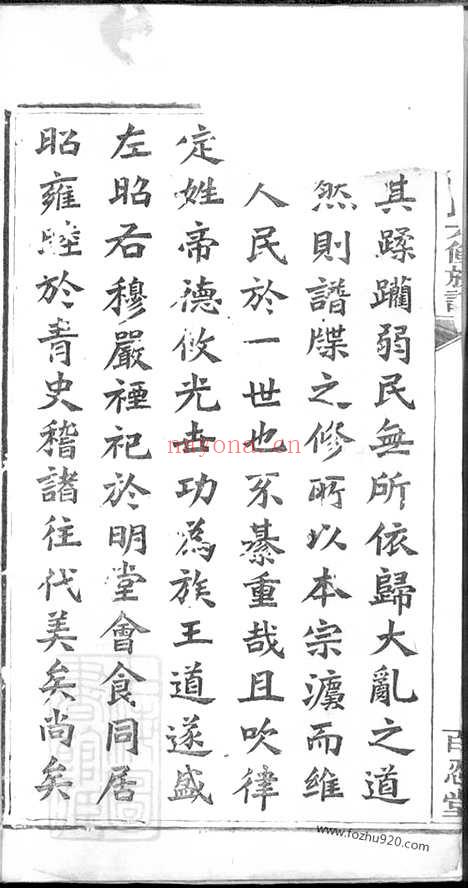 修族譜
百忍堂
其蹂躪弱民無所依歸大亂之道
然則譜牒之修所以本宗瀆而維
人民於一世也不綦重哉且吹律
定姓帝德攸光世功為族王道遂盛
左昭右穆嚴禋祀於明堂會食同居
昭雍睦於青史稽諸往代美矣尚矣
nayona.cn
www.fozhu920.com